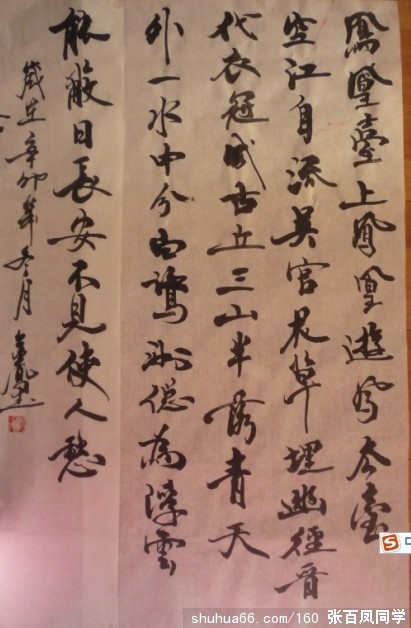 鳳凰臺上鳳凰遊鳳去臺
空江自流吳宮花草埋幽徑晋
代衣冠成古丘三山半落青天
外一水中分白鷺洲總為浮雲
能蔽日長安不見使人愁
歲在辛卯年冬月
shuhua66.com/160 张百凤同学